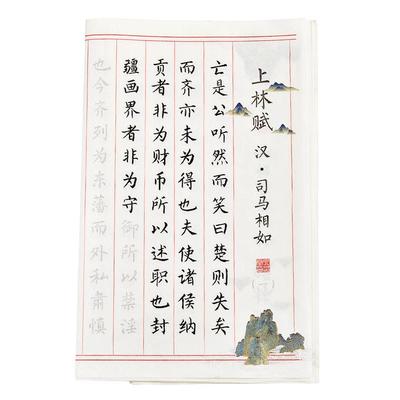 上林赋 汉·司马相如
亡是公听然而笑曰楚则失矣
而齐亦未为得也夫使诸侯纳
贡者非为财币所以述职也封
疆画界者非为守御所以禁淫
也今齐列为东藩而外私肃慎